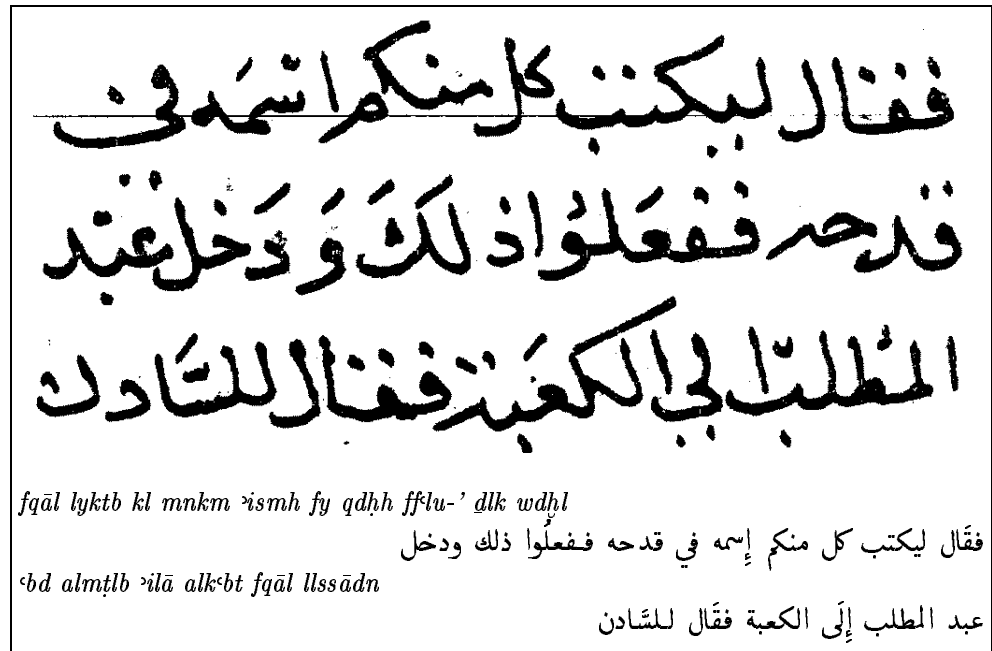 فقال ليكتب كل منكم اسمَه في
قدحه ففعَلُوا ذلكَ وَدَخل عَبْد
المُطلب الي الكعَبة فقال للسَّادن
fqāl lyktb kl mnkm ʾismh fy qdḥh ffʿlu-’ ḏlk wdḫl
فقَال ليكتب كل منكم إِسمه في قدحه ففعلُوا ذلك ودخل
ʿbd almṭlb ʾilā alkʿbt fqāl llssādn
عبد المطلب إِلَى الكعبة فقَال للسَّادن